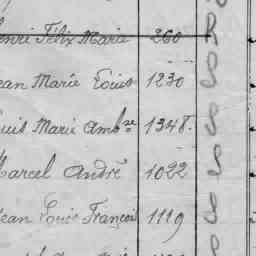 enri Félix Marie 260 R
ean Marie Louis 1230 S
uis Marie Amb.se 1348. S
Marcel André 1022 S
Jean Louis François 1119 S